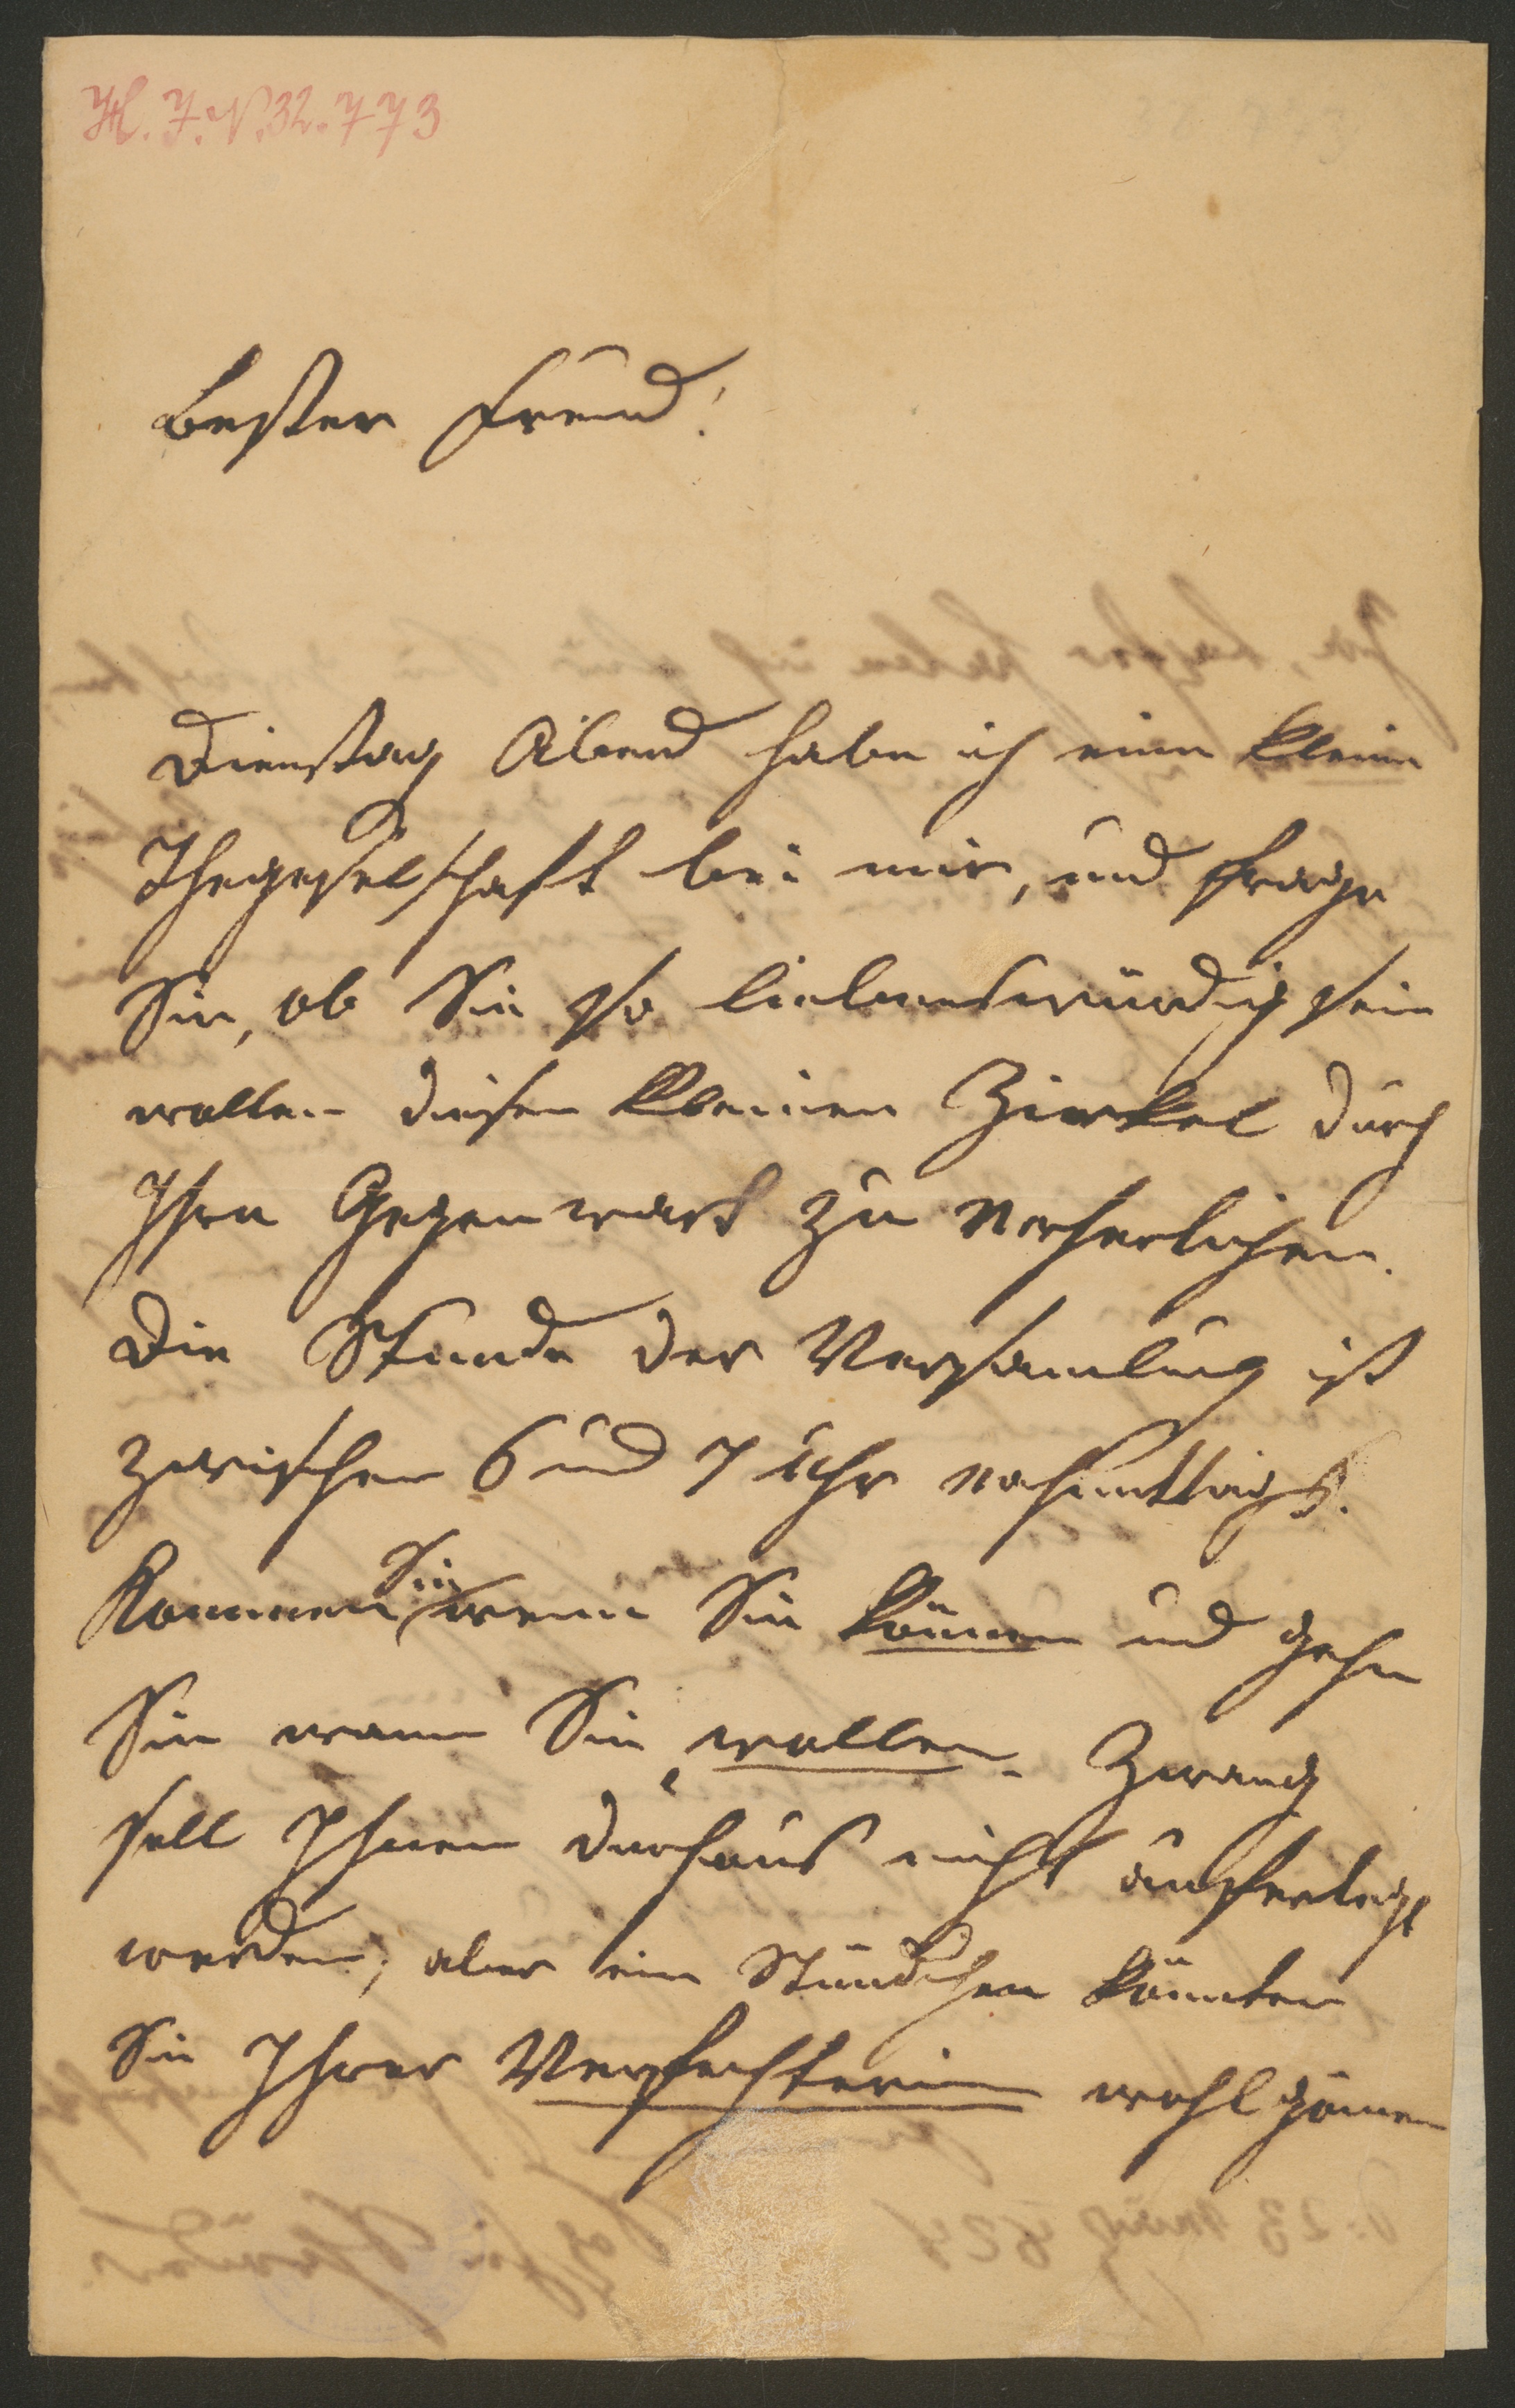 H. I. N. 32.773
Bester Freund!
Dienstag Abend habe ich eine kleine
Theegeselschaft bei mir, und frage
Sie, ob Sie so liebenswürdig sein
wollen diesen kleinen Zirkel durch
Ihre Gegenwart zu verherlichen.
Die Stunde der Versamlung ist
zwischen 6 und 7 Uhr nachmittags.
Kommen Sie wenn Sie können und gehn
Sie wann Sie wollen. Zwang
soll Ihnen durchaus nicht aufferlegt
werden; aber ein Stündchen könnten
Sie Ihrer Verfechterinn wohl gönnen